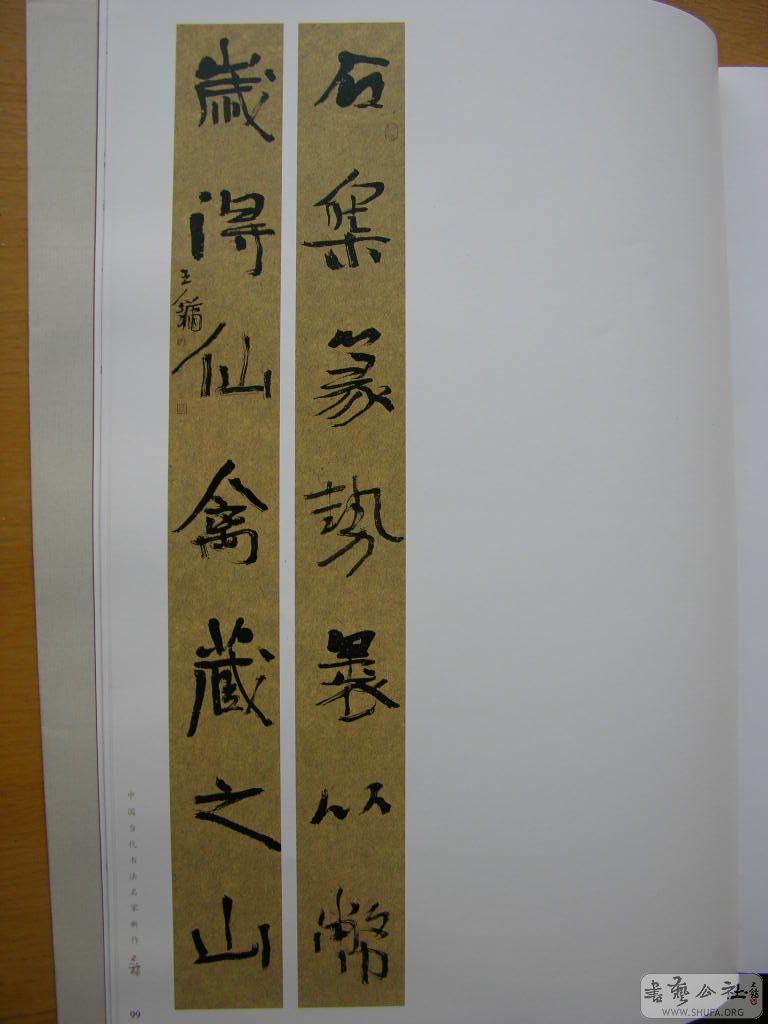 石集篆勢裹以幣
歲得仙禽藏之山
王鏞
中国当代书法名家新作
99
書藝公社
WWW.SHUFA.ORG